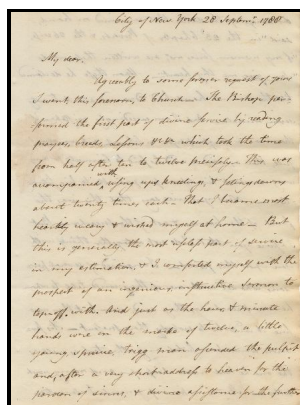 City of New York 28 Septem.r 1788
My dear.
Agreeably to some former request of yours
I went, this forenoon, to Church — The Bishop per-
formed the first part of divine service by reading
prayers, creeds, lessons &c &c which took the time
from half after ten to twelve precisely. This was
accompanied, with rising ups, kneelings, & sitting downs
about twenty times each — That I became most
heartily weary & wished myself at home — But
this is generally the most useless part of service
in my estimation, & I comforted myself with the
prospect of an ingenious, instructive sermon to
top off with. And just as the hour & minute
hands were on the marks of twelve, a little
young, spruce, trigg man ascended the pulpit
and, after a very short address to heaven for the
pardon of sinns, & divine assistance for the